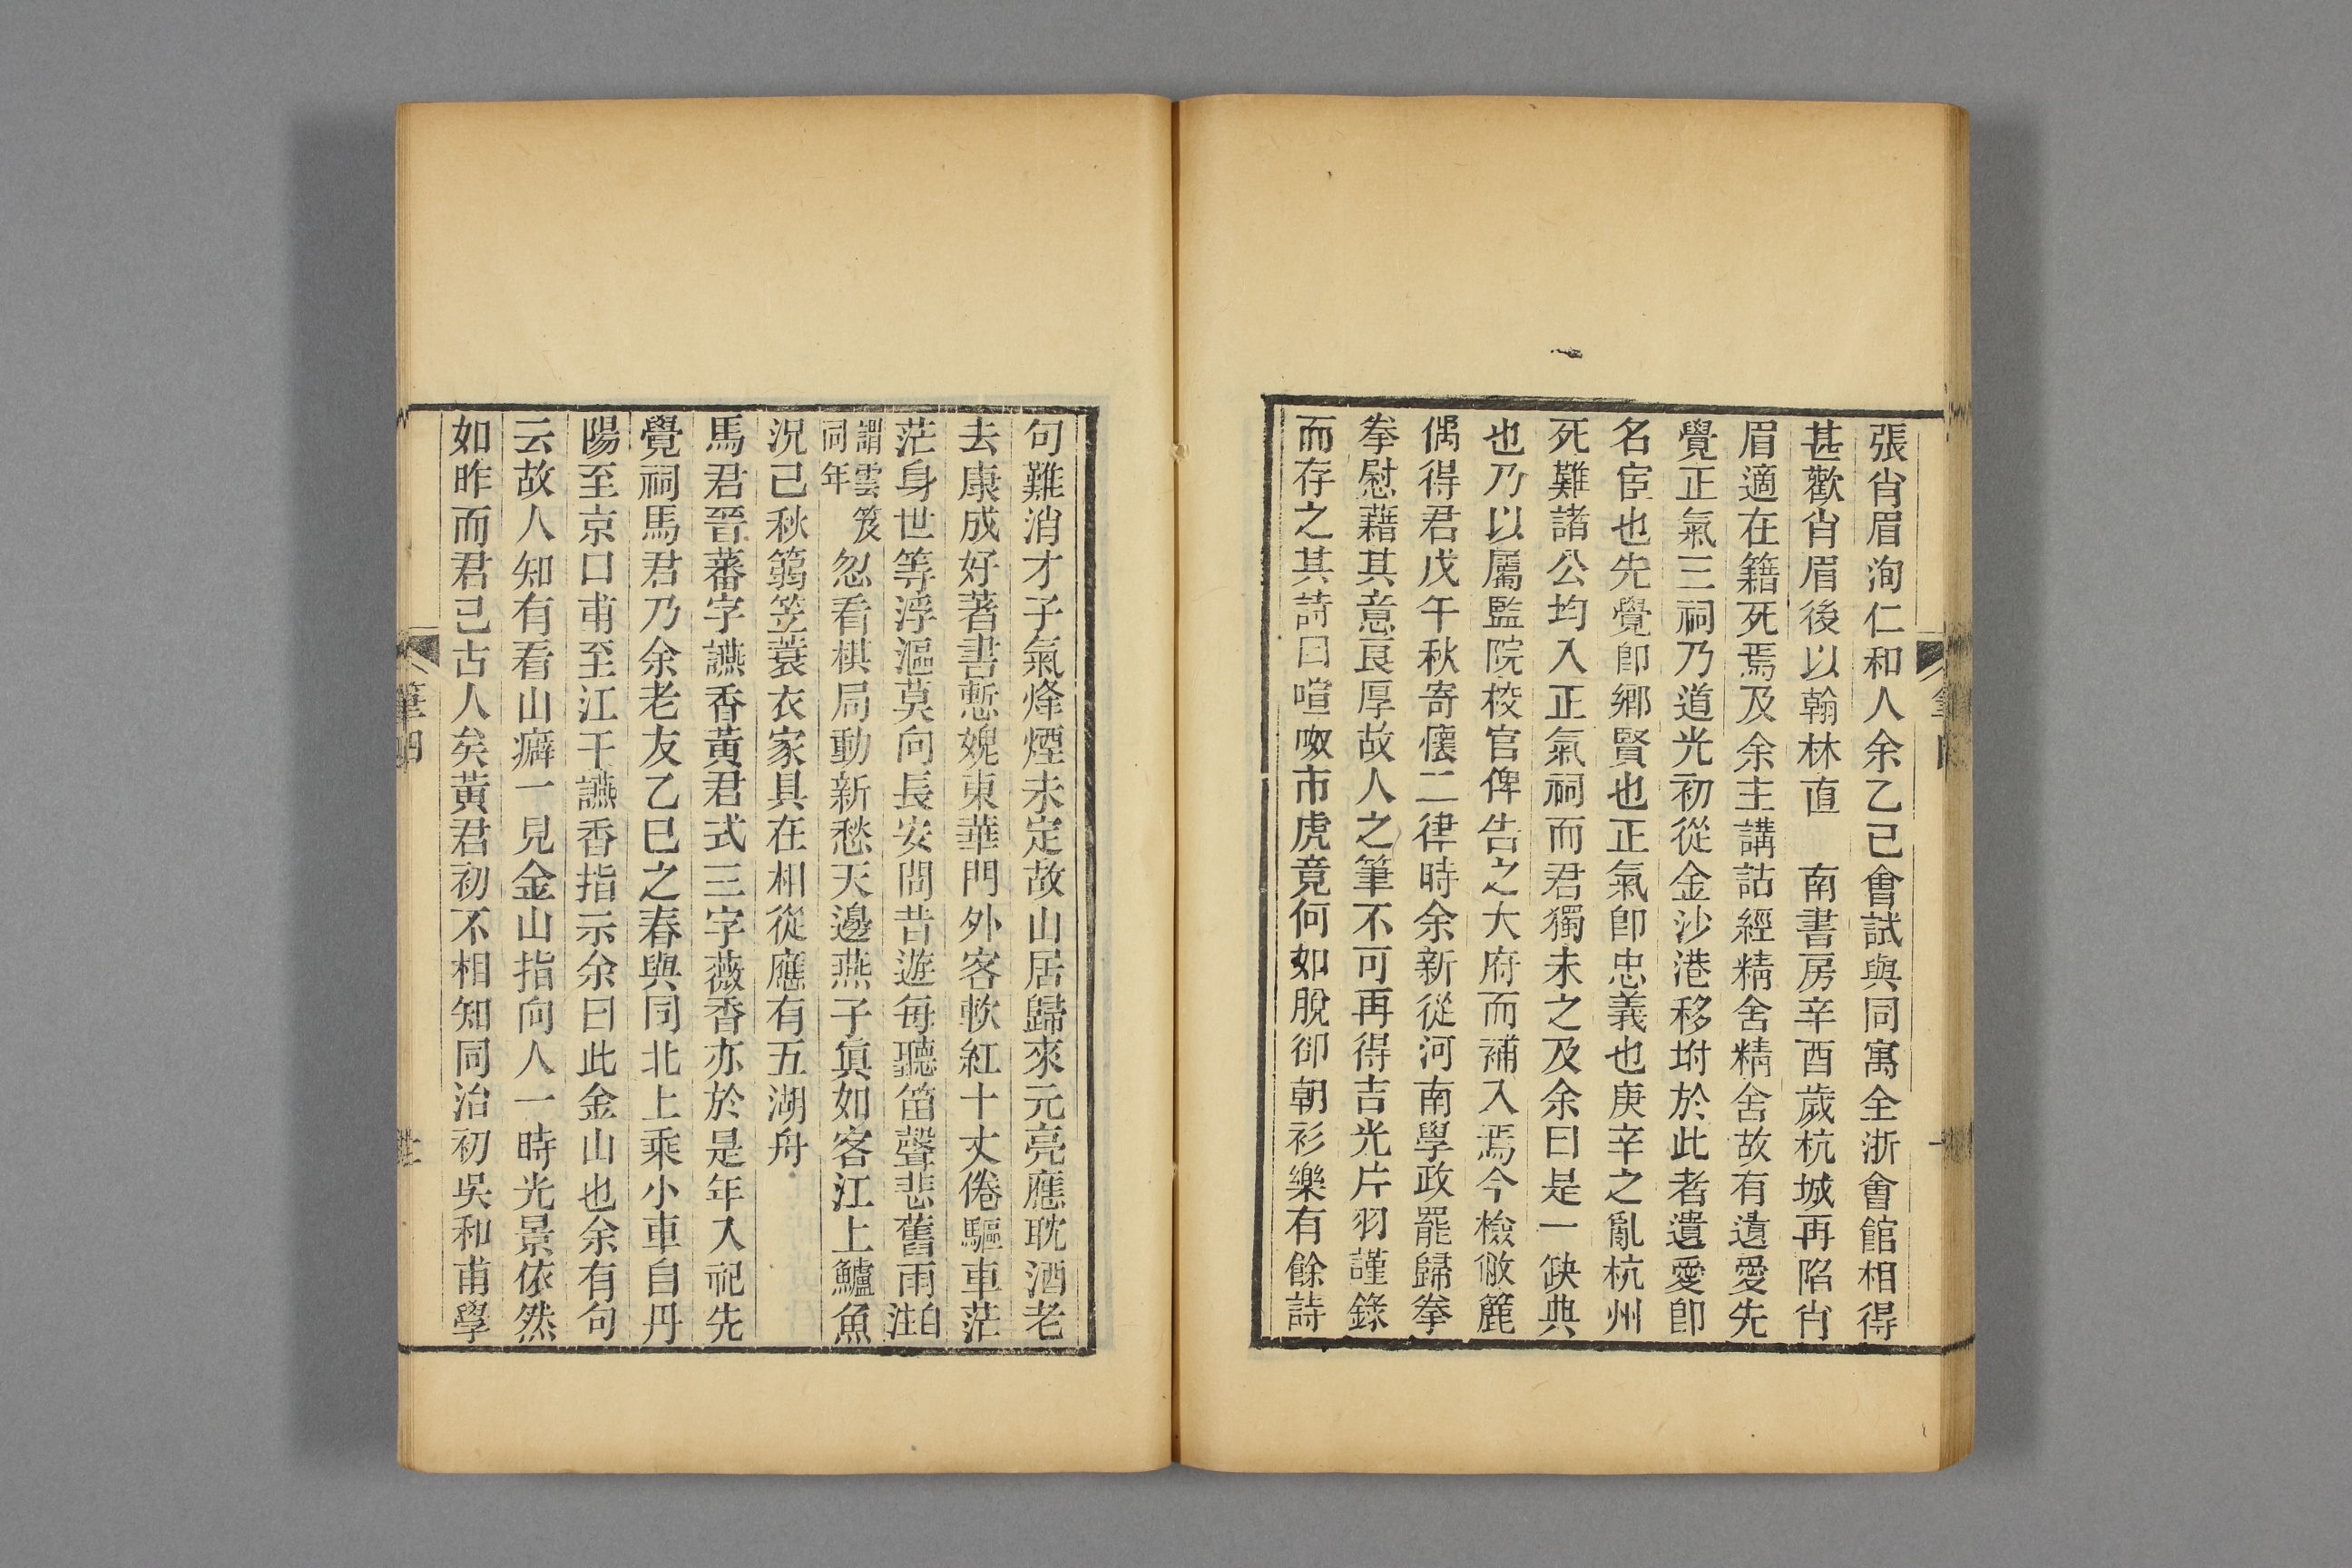 張肖眉洵仁和人余乙巳會試與同寓全浙會館相得
甚歡肖眉後以翰林直　南書房辛酉歲杭城再陷肖
眉適在籍死焉及余主講詁經精舍精舍故有遺愛先
覺正氣三祠乃道光初從金沙港移坿於此者遺愛卽
名宦也先覺卽鄉賢也正氣卽忠義也庚辛之亂杭州
死難諸公均入正氣祠而君獨未之及余曰是一缺典
也乃以屬監院校官俾告之大府而補入焉今檢敝簏
偶得君戊午秋寄懷二律時余新從河南學政罷歸拳
拳慰藉其意良厚故人之筆不可再得吉光片羽謹錄
而存之其詩曰喧呶市虎竟何如脫卻朝衫樂有餘詩
句難消才子氣烽煙未定故山居歸來元亮應耽酒老
去康成好著書慙媿東華門外客軟紅十丈倦驅車茫
茫身世等浮漚莫向長安問昔遊每聽笛聲悲舊雨自注
謂雲笈同年忽看棋局動新愁天邊燕子真如客江上鱸魚
況己秋篛笠蓑衣家具在相從應有五湖舟
馬君晉蕃字讌香黃君式三字薇香亦於是年入祀先
覺祠馬君乃余老友乙巳之春與同北上乘小車自丹
陽至京口甫至江干讌香指示余曰此金山也余有句
云故人知有看山癖一見金山指向人一時光景依然
如昨而君已古人矣黃君初不相知同治初吳和甫學
筆四